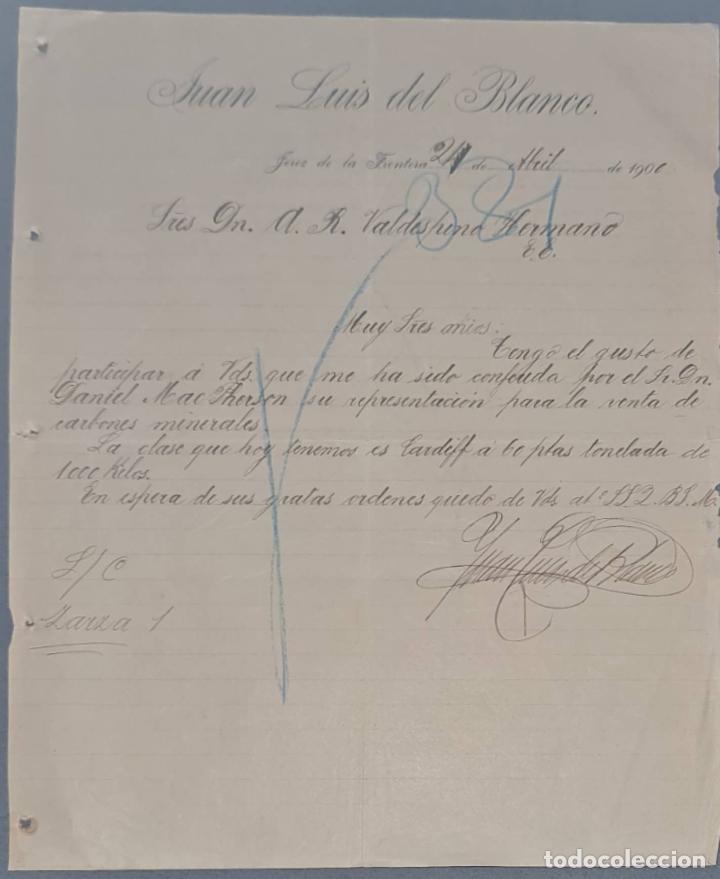 Juan Luis del Blanco.
Jerez de la Frontera de Abril de 1900
Sres Dn. A. R. Valdespino Hermano
Muy Sres mios:
Tengo el gusto de
participar á Vds. que me ha sido confiada por el Sr. Dn.
Daniel Mac Pherson su representación para la venta de
carbones minerales.
La clase que hoy tenemos es Cardiff á 60 ptas tonelada de
1000 Kilos.
En espera de sus gratas ordenes quedo de Vds. S.S. Q. B. S. M.
Juan Luis del Blanco
S/C
Zarza 1
todocoleccion.net